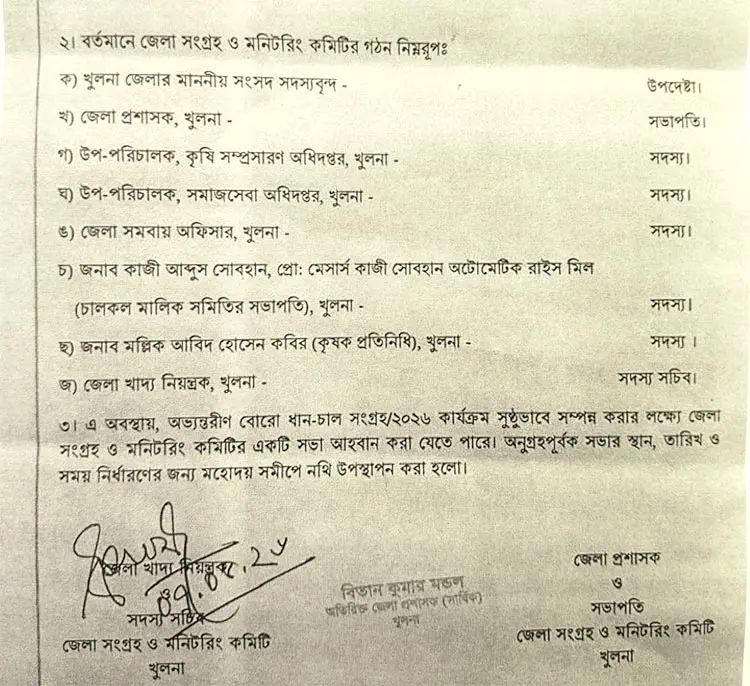 ২। বর্তমানে জেলা সংগ্রহ ও মনিটরিং কমিটির গঠন নিম্নরূপঃ
ক) খুলনা জেলার মাননীয় সংসদ সদস্যবৃন্দ - উপদেষ্টা।
খ) জেলা প্রশাসক, খুলনা - সভাপতি।
গ) উপ-পরিচালক, কৃষি সম্প্রসারণ অধিদপ্তর, খুলনা - সদস্য।
ঘ) উপ-পরিচালক, সমাজসেবা অধিদপ্তর, খুলনা - সদস্য।
ঙ) জেলা সমবায় অফিসার, খুলনা - সদস্য।
চ) জনাব কাজী আব্দুস সোবহান, প্রো: মেসার্স কাজী সোবহান অটোমেটিক রাইস মিল
(চালকল মালিক সমিতির সভাপতি), খুলনা - সদস্য।
ছ) জনাব মল্লিক আবিদ হোসেন কবির (কৃষক প্রতিনিধি), খুলনা - সদস্য ।
জ) জেলা খাদ্য নিয়ন্ত্রক, খুলনা - সদস্য সচিব।
৩। এ অবস্থায়, অভ্যন্তরীণ বোরো ধান-চাল সংগ্রহ/২০২৬ কার্যক্রম সুষ্ঠুভাবে সম্পন্ন করার লক্ষ্যে জেলা
সংগ্রহ ও মনিটরিং কমিটির একটি সভা আহবান করা যেতে পারে। অনুগ্রহপূর্বক সভার স্থান, তারিখ ও
সময় নির্ধারণের জন্য মহোদয় সমীপে নথি উপস্থাপন করা হলো।
জেলা খাদ্য নিয়ন্ত্রক
ও
সদস্য সচিব
জেলা সংগ্রহ ও মনিটরিং কমিটি
খুলনা
বিতান কুমার মন্ডল
অতিরিক্ত জেলা প্রশাসক (সার্বিক)
খুলনা
জেলা প্রশাসক
ও
সভাপতি
জেলা সংগ্রহ ও মনিটরিং কমিটি
খুলনা